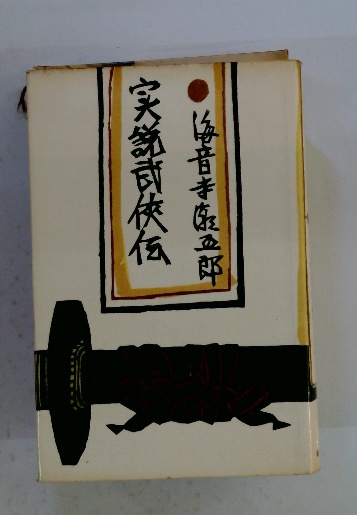 海音寺潮五郎
実説武侠伝